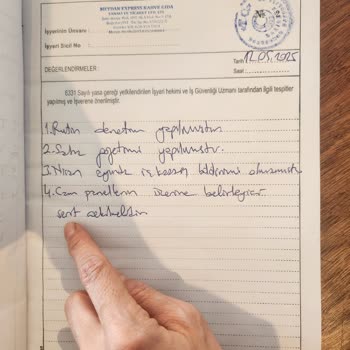 REYHAN EXPRESS KAHVE GIDA
İşyerinin Ünvanı :
İşyeri Sicil No :
Tarih 12.05.2025
Saat :
DEĞERLENDİRMELER :
6331 Sayılı yasa gereği yetkilendirilen İşyeri hekimi ve İş Güvenliği Uzmanı tarafından ilgili tespitler
yapılmış ve İşverene önerilmiştir.
1. Rutin denetim yapılmıştır.
2. Saha yapılmıştır.
3. Nisan ayında iş kazası bildirimi olmamıştır.
4. Cam panellerin üzerine belirleyici
şerit çekilmelidir.